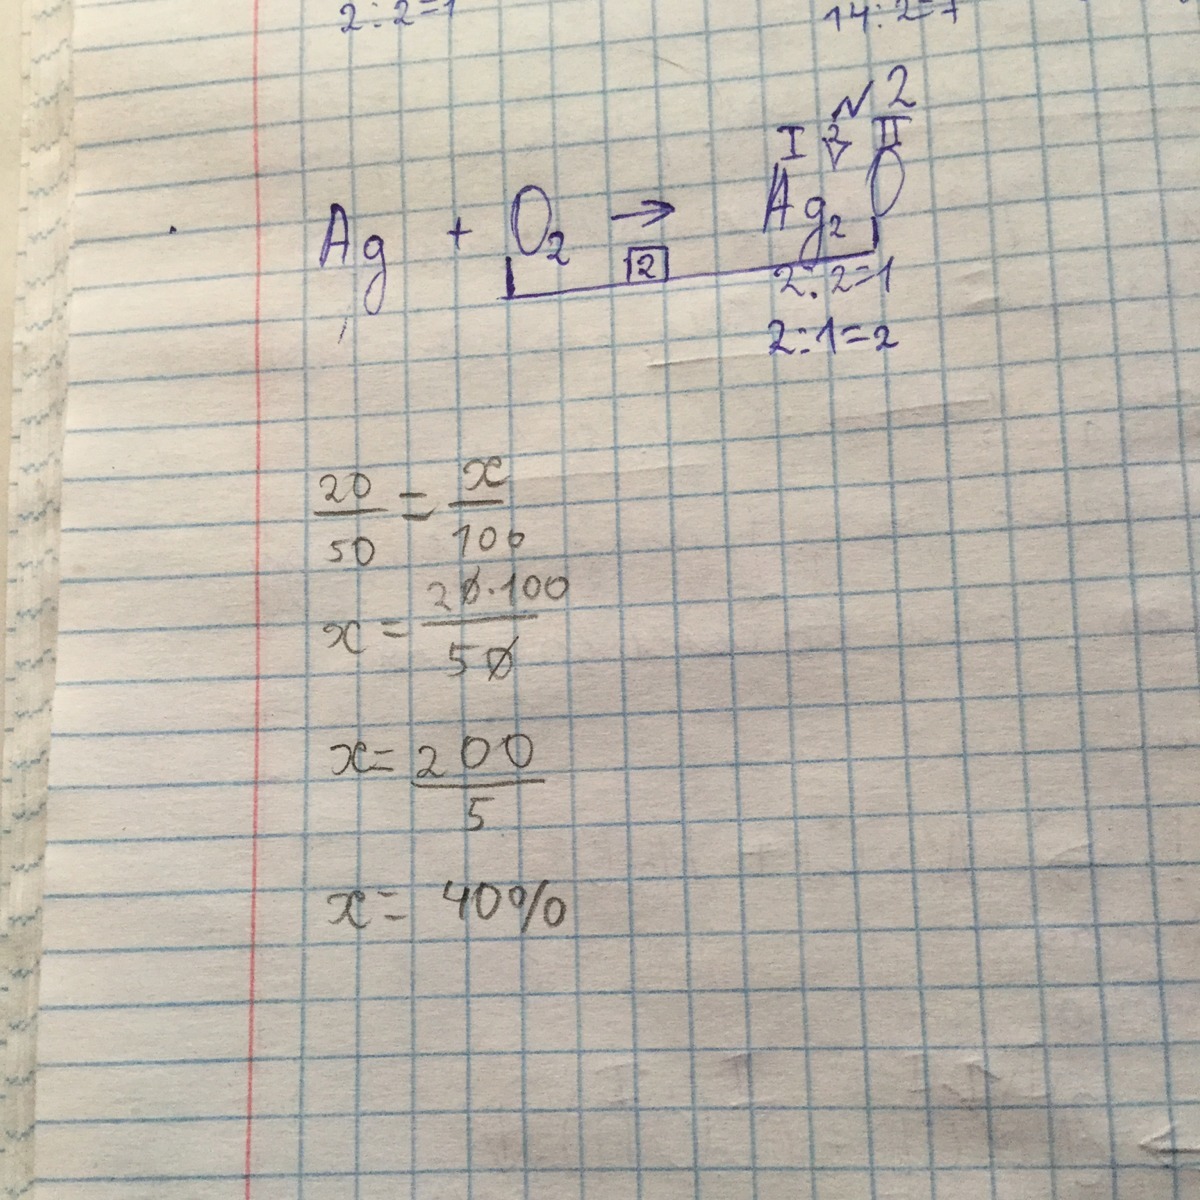 2:2=1 14:2=7
2
I 2 II
Ag + O₂ → Ag₂O
2
2:2=1
2:1=2
20/50 = x/100
x = 20·100/50
x = 200/5
x = 40%